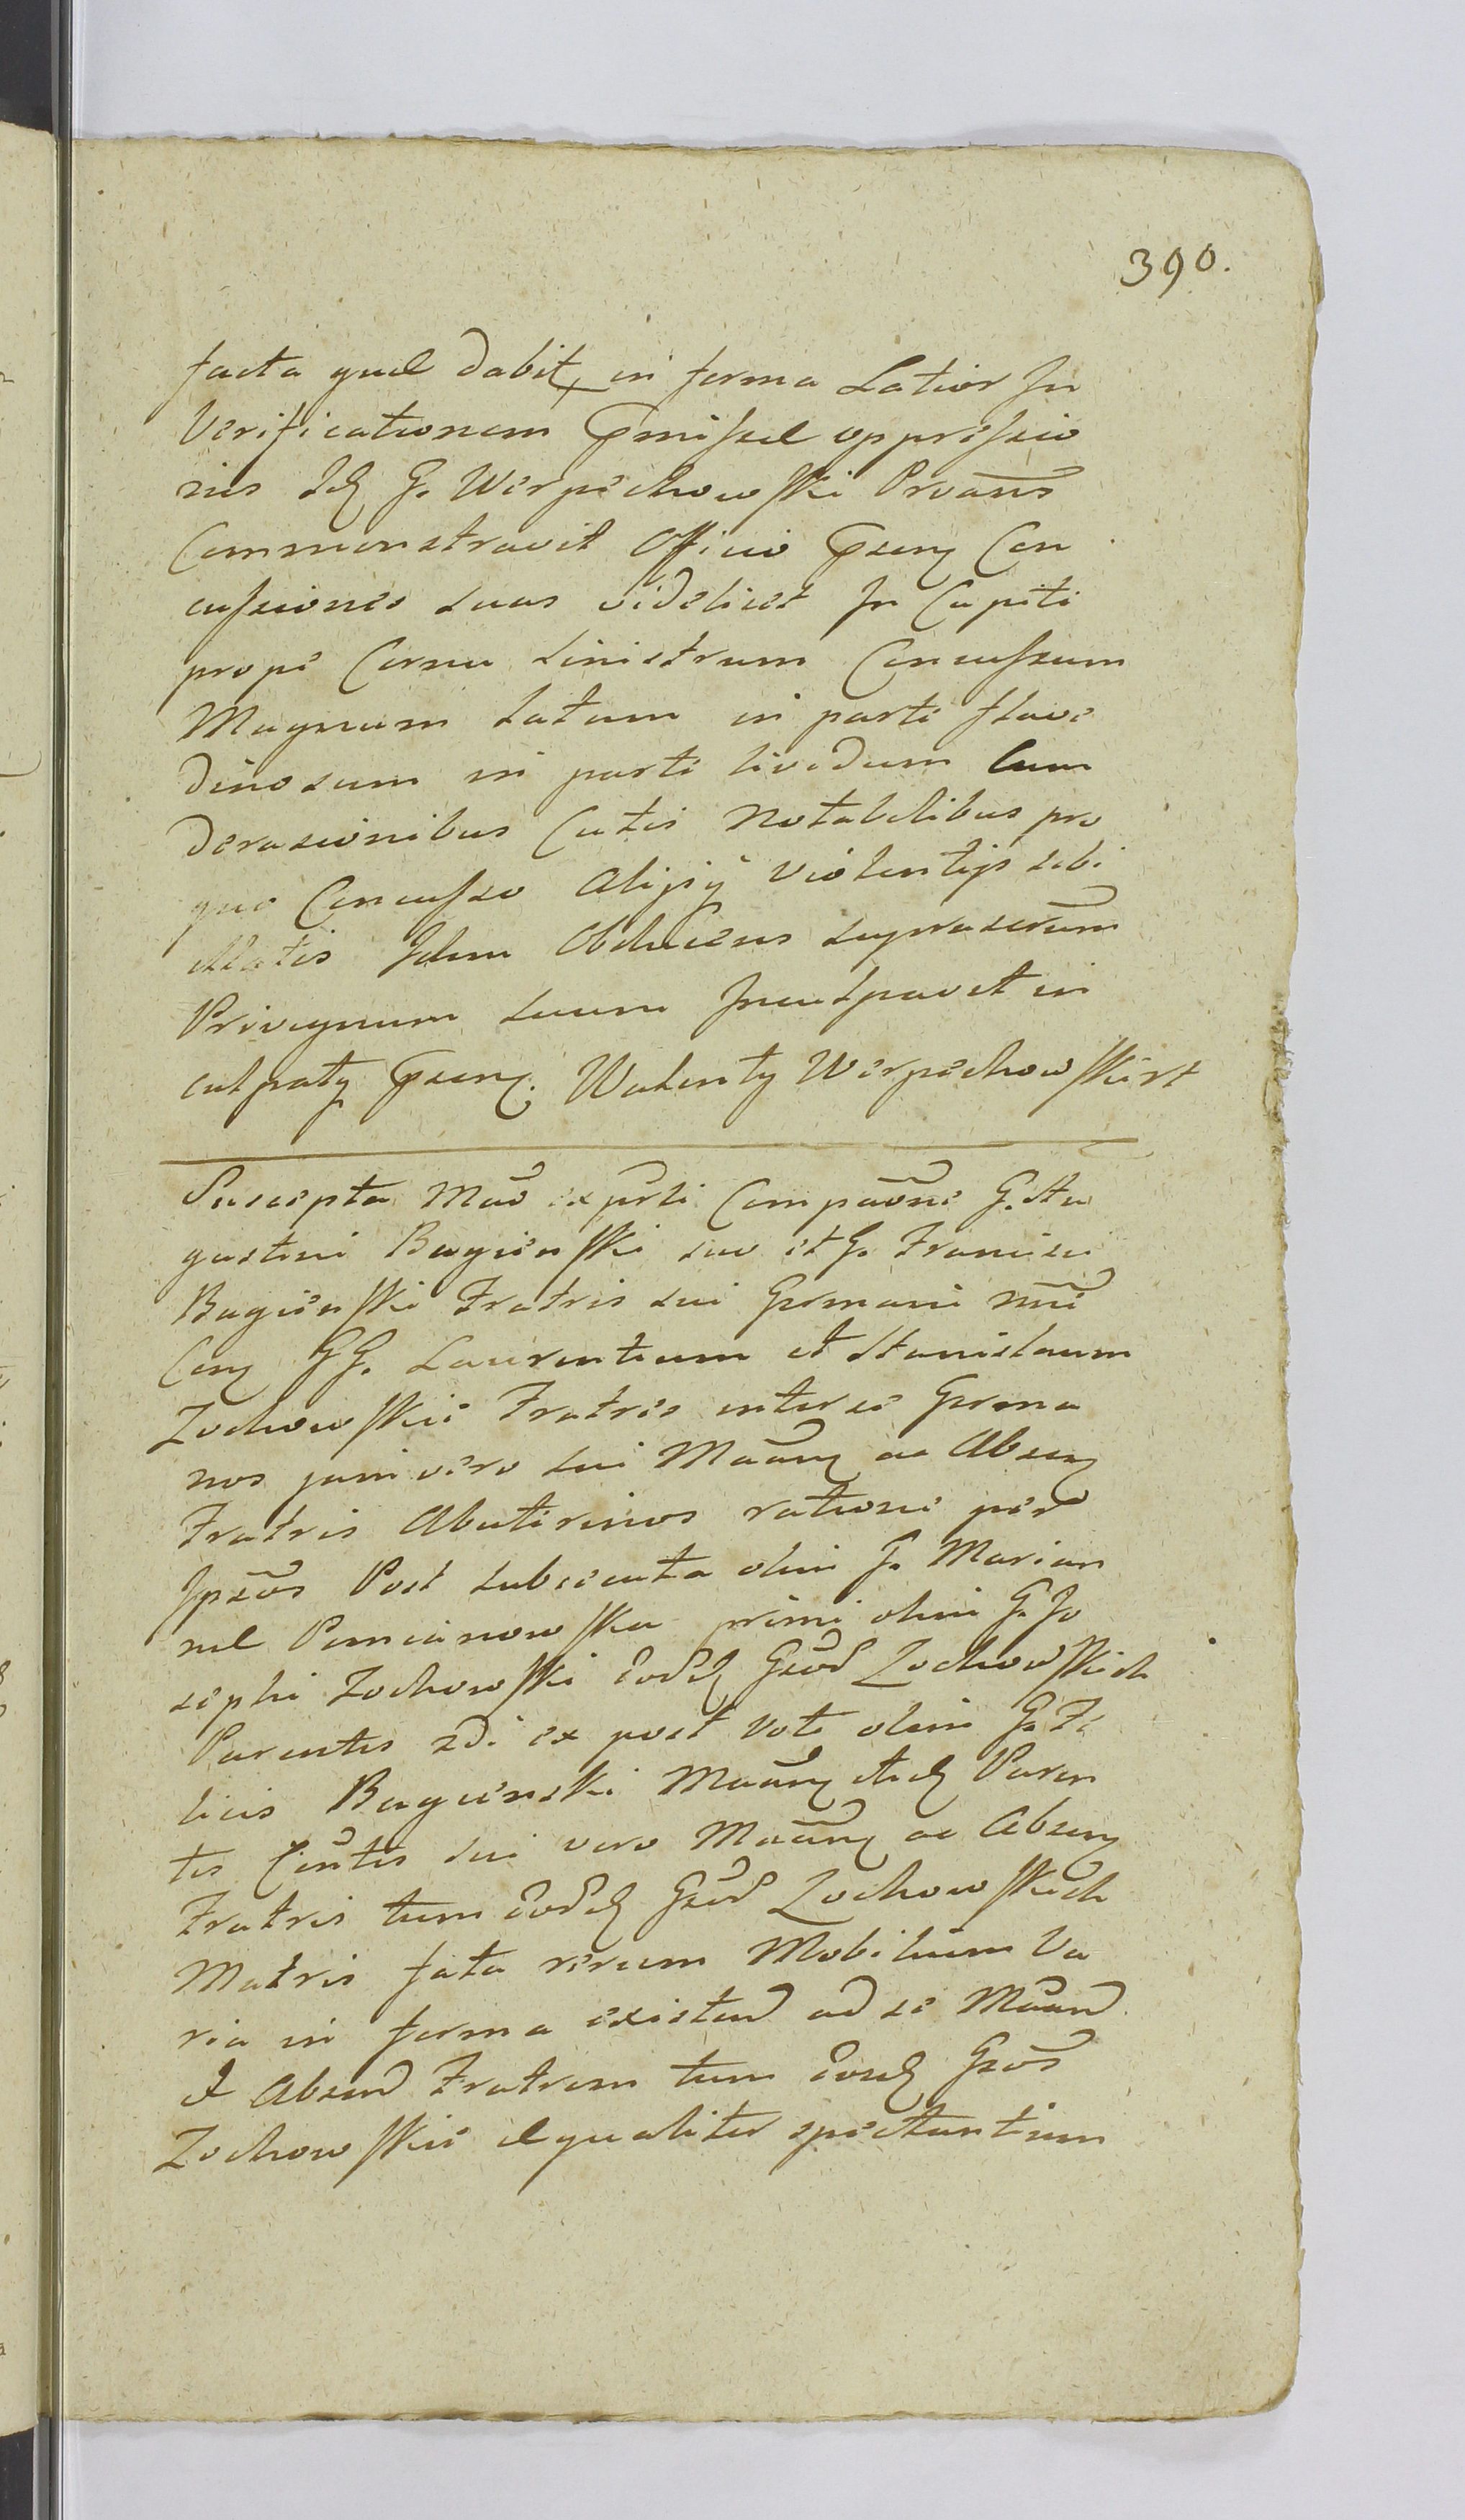 390.
facta quae dabit in forma Latior In
Verificationem Pmissae oppressio
nis Idq G. Werpechowski Proans
Commonstravit Officio Psenq Con
cussiones suas videlicet In Capite
prope Cornu sinistrum Concussum
Magnum Latum in parte flave
dinosum in parte lividum Cum
derasionibus Cutis Notabilibus pro
quo Concusso Alijsq Violentijs sibi
illatis Idem Obducens suprascrum
Privignum suum Inculpavit in
culpatq Psenq. Walenty Werpechowski rt
Suscepta Mao ex prti Compaone G. Au
gustini Bagienski suo et G. Francisci
Bagienski Fratris sui Germani nnie
Conq GG. Laurentium et Stanislaum
Zochowskie Fratres inter se Germa
nos jam vero sui Maanq ac Absenq
Fratris Abuterinos ratione per
Ipsos Post subsecuta olim G. Marian
nae Pomianowska primi olim G. Jo
sephi Zochowski eordq Gsor Zochowskich
Parentis 2di ex post Voti olim G. Fe
licis Bagienski Maanq Aeq Paren
tis Contis sui vero Maanq ac Absenq
Fratris tum eordq Gsor Zochowskich
Matris fata rerum Mobilium Va
ria in forma existend ad se Maand
et Absend Fratrem tum eosdq Gsos
Zochowskie aequaliter spectantium